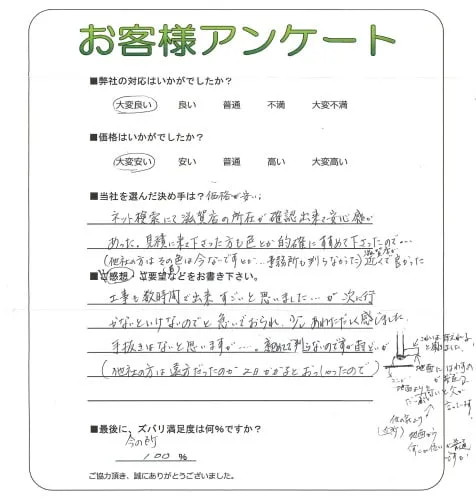 お客様アンケート
■弊社の対応はいかがでしたか？
大変良い 良い 普通 不満 大変不満
■価格はいかがでしたか？
大変安い 安い 普通 高い 大変高い
■当社を選んだ決め手は？価格が安い
ネット検索にて滋賀店の所在が確認出来て安心感が
あった。見積に来て下さった方も色とか的確に
(他社の方はその色は今ないですとか… 近くて良かった
■ご感想・ご要望などをお書き下さい。
工事も数時間で出来すごいと思いました…が次に行
かないといけないのでと急いでおられ、少しあわただしく感じました。
手抜きはないと思いますが…。
(他社の方は遠方だったのか2日かかるとおっしゃったので)
■最後に、ズバリ満足度は何％ですか？
今の所
100％
ご協力頂き、誠にありがとうございました。